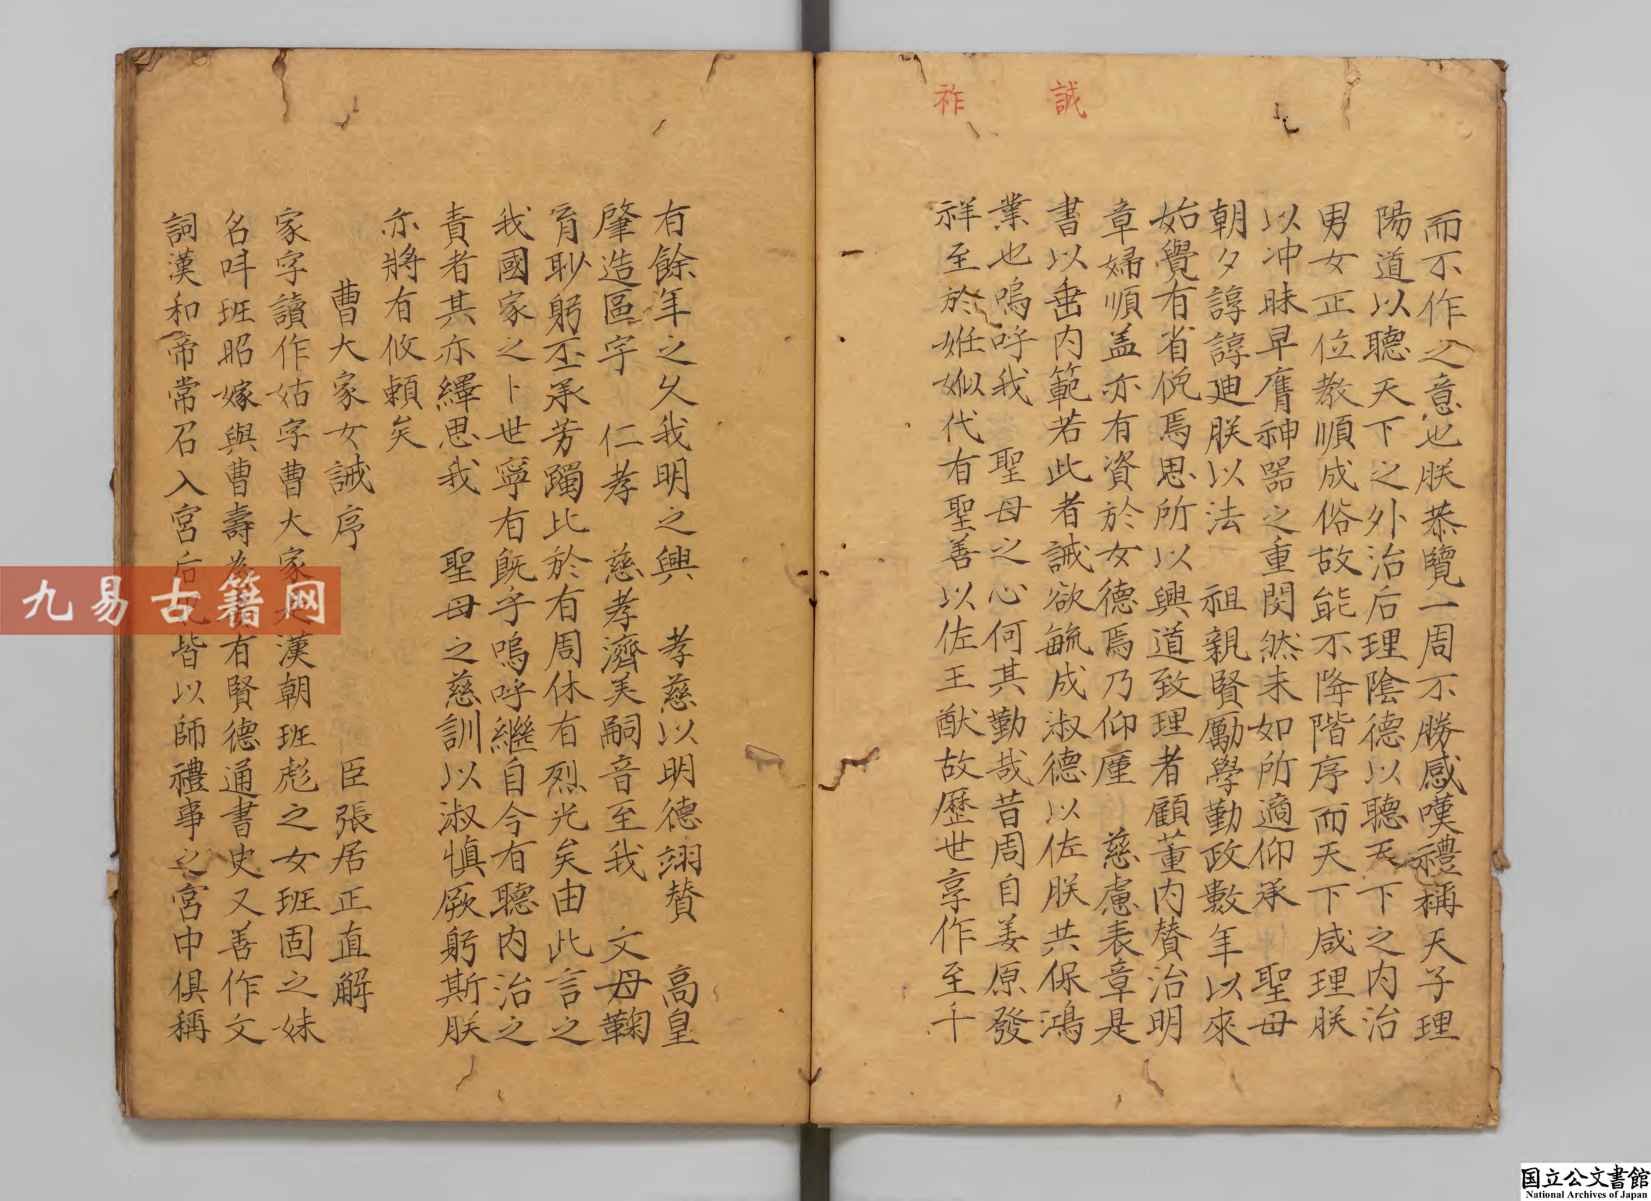 誠
祚
而不作之意也朕恭覽一周不勝感嘆禮稱天子理
陽道以聽天下之外治后理陰德以聽天下之內治
男女正位教順成俗故能不降階序而天下咸理朕
以冲昧早膺神器之重閔然未如所適仰承 聖母
朝夕諄諄迪朕以法 祖親賢勵學勤政數年以來
始覺有省倪焉思所以興道致理者顧董內賛治明
章婦順盖亦有資於女德焉乃仰廑 慈慮表章是
書以垂內範若此者誠欲毓成淑德以佐朕共保鴻
業也嗚呼我 聖母之心何其勤哉昔周自姜原發
祥至於姙姒代有聖善以佐王猷故歷世享作至千
有餘年之久我明之興 孝慈以明德翊賛 高皇
肇造區宇 仁孝 慈孝濟美嗣音至我 文母鞠
育眇躬丕承芳躅比於有周休有烈光矣由此言之
我國家之卜世寧有旣乎嗚呼繼自今有聽內治之
責者其亦繹思我 聖母之慈訓以淑慎厥躬斯朕
亦將有攸賴矣
曹大家女誡序 臣張居正直解
家字讀作姑字曹大家是漢朝班彪之女班固之妹
名呌班昭嫁與曹壽為妻有賢德通書史又善作文
詞漢和帝常召入宮后妃皆以師禮事之宮中俱稱
九易古籍网
国立公文書館
National Archives of Japan